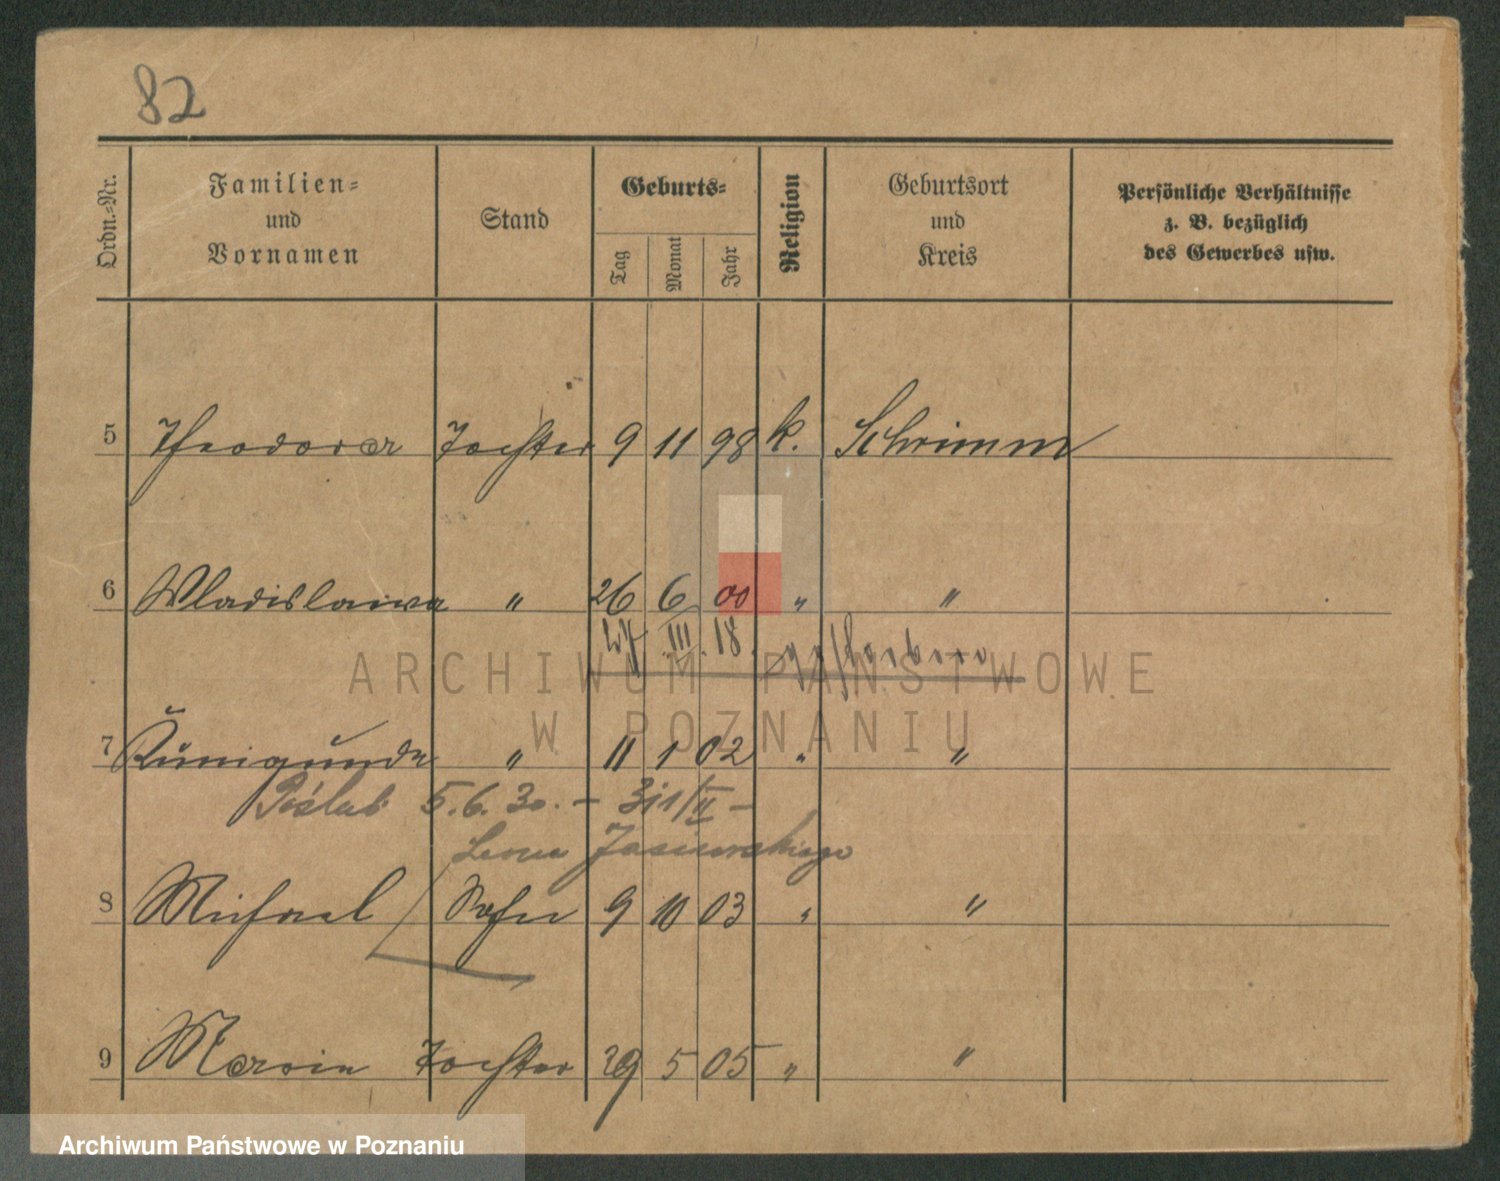 82
Ordn.-Nr.
Familien- und Vornamen
Stand
Geburts-
Tag
Monat
Jahr
Religion
Geburtsort und Kreis
Persönliche Verhältnisse z. B. bezüglich des Gewerbes usw.
5 Theodora Tochter 9 11 98 k. Schrimm
6 Wladislawa " 26 6 00 " "
III. 18. gestorben
ARCHIWUM PAŃSTWOWE
W POZNANIU
7 Kunigunde " 11 1 02 " "
Poślub. 5.6.30. –
Leona Jasiewskiego
8 Michael Sohn 9 10 03 " "
9 Maria Tochter 29 5 05 " "
Archiwum Państwowe w Poznaniu